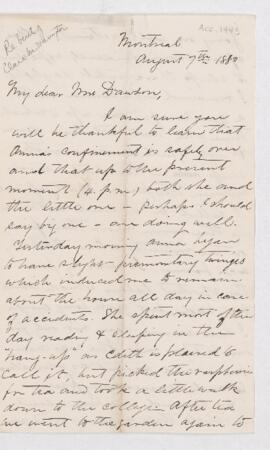 Re birth of
Clare M. Harrington
Acc. 1443
Montreal
August 7th 1880
My dear Mrs Dawson,
I am sure you
will be thankful to learn that
Anna's confinement is safely over
and that up to the present
moment (4. p.m) both she and
the little one – perhaps I should
say big one – are doing well.
Yesterday morning Anna began
to have slight premonitory twinges
which induced me to remain
about the house all day in case
of accidents. She spent most of the
day reading & sleeping in the
"hang-up" as Edith is pleased to
call it, but picked the raspberries
for tea and took a little walk
down to the college. After tea
we went to the garden again to